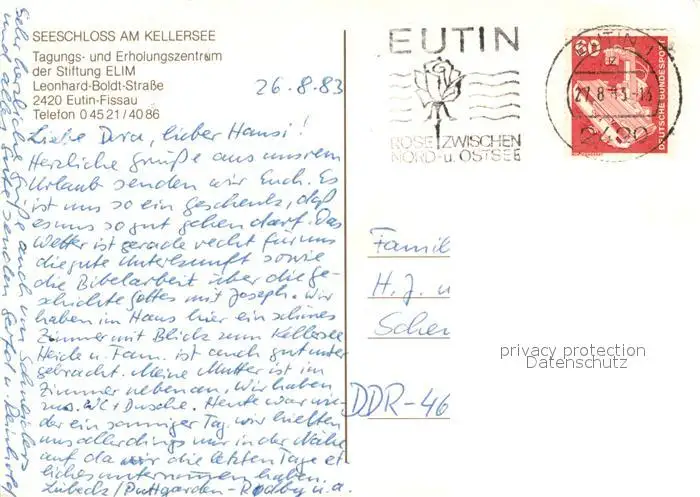 SEESCHLOSS AM KELLERSEE
Tagungs- und Erholungszentrum
der Stiftung ELIM
Leonhard-Boldt-Straße
2420 Eutin-Fissau
Telefon 0 45 21 / 40 86
26.8.83
Liebe Dora, lieber Hansi!
Herzliche Grüße aus unsrem
Urlaub senden wir Euch. Es
ist uns so ein Geschenk, daß
es uns so gut gehen darf. Das
Wetter ist gerade recht für uns
die gute Unterkunft sowie
die Bibelarbeit über die Ge-
schichte Gottes mit Joseph. Wir
haben im Haus hier ein schönes
Zimmer mit Blick zum Kellersee
Heide u. Fam. ist auch gut unter
gebracht. Meine Mutter ist im
Zimmer nebenan, Wir haben
zus. WC + Dusche. Heute war wie-
der ein sonniger Tag. wir hielten
uns allerdings nur in der Nähe
auf da wir die letzten Tage et
liches unternommen haben.
Lübeck / Puttgarden - Rodby u. a.
Sehr herzliche Grüße auch von
und alles Gute senden Gerda u. Reinhold
EUTIN
ROSE ZWISCHEN
NORD- u. OSTSEE
EUTIN 1
27.8.83-13
2420
60
DEUTSCHE BUNDESPOST
Famil
H. J. u
Scher
DDR-46
privacy protection
Datenschutz